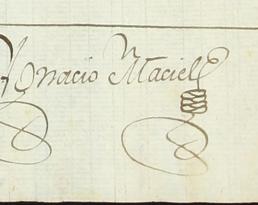 Ygnacio Maciel